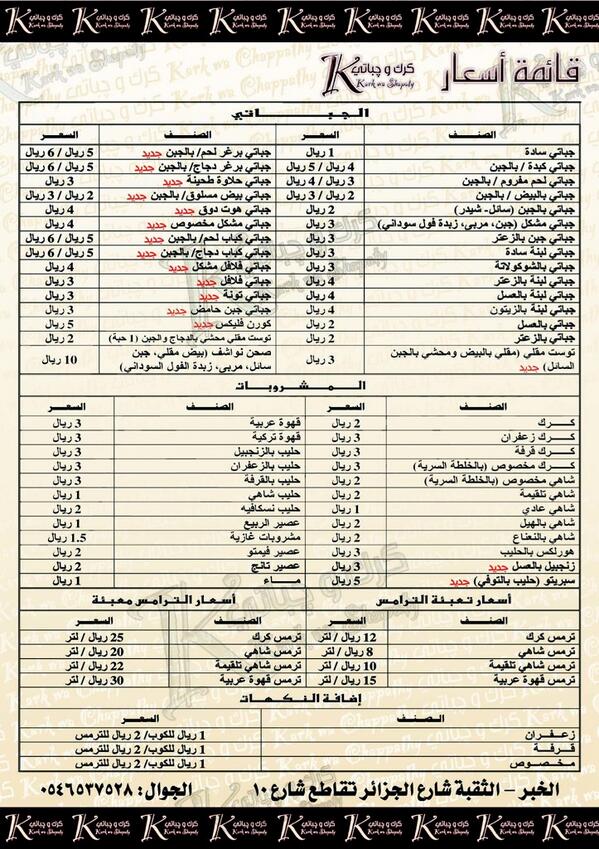 كرك و چباتي
Kark wa Shapaty
قائمة أسعار
الچبـــاتي
الصنف السعر الصنف السعر
جباتي سادة 1 ريال جباتي برغر لحم/ بالجبن جديد 5 ريال / 6 ريال
جباتي كبدة / بالجبن 4 ريال / 5 ريال جباتي برغر دجاج/ بالجبن جديد 5 ريال / 6 ريال
جباتي لحم مفروم / بالجبن 3 ريال / 4 ريال جباتي حلاوة طحينة جديد 3 ريال
جباتي بالبيض / بالجبن 2 ريال / 3 ريال جباتي بيض مسلوق/ بالجبن جديد 2 ريال / 3 ريال
جباتي بالجبن (سائل- شيدر) 2 ريال جباتي هوت دوق جديد 4 ريال
جباتي مشكل (جبن، مربى، زبدة فول سوداني) 3 ريال جباتي مشكل مخصوص جديد 4 ريال
جباتي جبن بالزعتر 3 ريال جباتي كباب لحم/ بالجبن جديد 5 ريال / 6 ريال
جباتي لبنة سادة 3 ريال جباتي كباب دجاج/ بالجبن جديد 5 ريال / 6 ريال
جباتي بالشوكولاتة 3 ريال جباتي فلافل مشكل جديد 4 ريال
جباتي لبنة بالزعتر 4 ريال جباتي فلافل جديد 3 ريال
جباتي لبنة بالعسل 4 ريال جباتي تونة جديد 3 ريال
جباتي لبنة بالزيتون 4 ريال جباتي جبن حامض جديد 3 ريال
جباتي بالعسل 2 ريال كورن فليكس جديد 5 ريال
جباتي بالزعتر 2 ريال توست مقلي محشي بالدجاج والجبن (1 حبة) 2 ريال
توست مقلي (مقلي بالبيض ومحشي بالجبن السائل) جديد 3 ريال صحن نواشف (بيض مقلي، جبن سائل، مربى، زبدة الفول السوداني) 10 ريال
الـمـشـروبـات
الصنف السعر الصنف السعر
كـــرك 2 ريال قهوة عربية 3 ريال
كـــرك زعفران 3 ريال قهوة تركية 3 ريال
كـــرك قرفة 3 ريال حليب بالزنجبيل 3 ريال
كـــرك مخصوص (بالخلطة السرية) 3 ريال حليب بالزعفران 3 ريال
شاهي مخصوص (بالخلطة السرية) 2 ريال حليب بالقرفة 3 ريال
شاهي تلقيمة 2 ريال حليب شاهي 1 ريال
شاهي عادي 1 ريال حليب نسكافيه 2 ريال
شاهي بالهيل 2 ريال عصير الربيع 1 ريال
شاهي بالنعناع 2 ريال مشروبات غازية 1.5 ريال
هورلكس بالحليب 3 ريال عصير فيمتو 2 ريال
زنجبيل بالعسل جديد 3 ريال عصير تانج 2 ريال
سبريتو (حليب بالتوفي) جديد 5 ريال مـــاء 1 ريال
أسعار تعبئة الترامس أسعار الترامس معبئة
الصنف السعر الصنف السعر
ترمس كرك 12 ريال / لتر ترمس كرك 25 ريال / لتر
ترمس شاهي 8 ريال / لتر ترمس شاهي 20 ريال / لتر
ترمس شاهي تلقيمة 10 ريال / لتر ترمس شاهي تلقيمة 22 ريال / لتر
ترمس قهوة عربية 15 ريال / لتر ترمس قهوة عربية 30 ريال / لتر
إضافة النكهات
الصنف السعر
زعـفـران 1 ريال للكوب/ 2 ريال للترمس
قـرفـة 1 ريال للكوب/ 2 ريال للترمس
مـخـصـوص 1 ريال للكوب/ 2 ريال للترمس
الخبر – الثقبة شارع الجزائر تقاطع شارع ١٠ الجوال: ٠٥٤٦٥٣٧٥٢٨
كرك و چباتي
Kark wa Shapaty